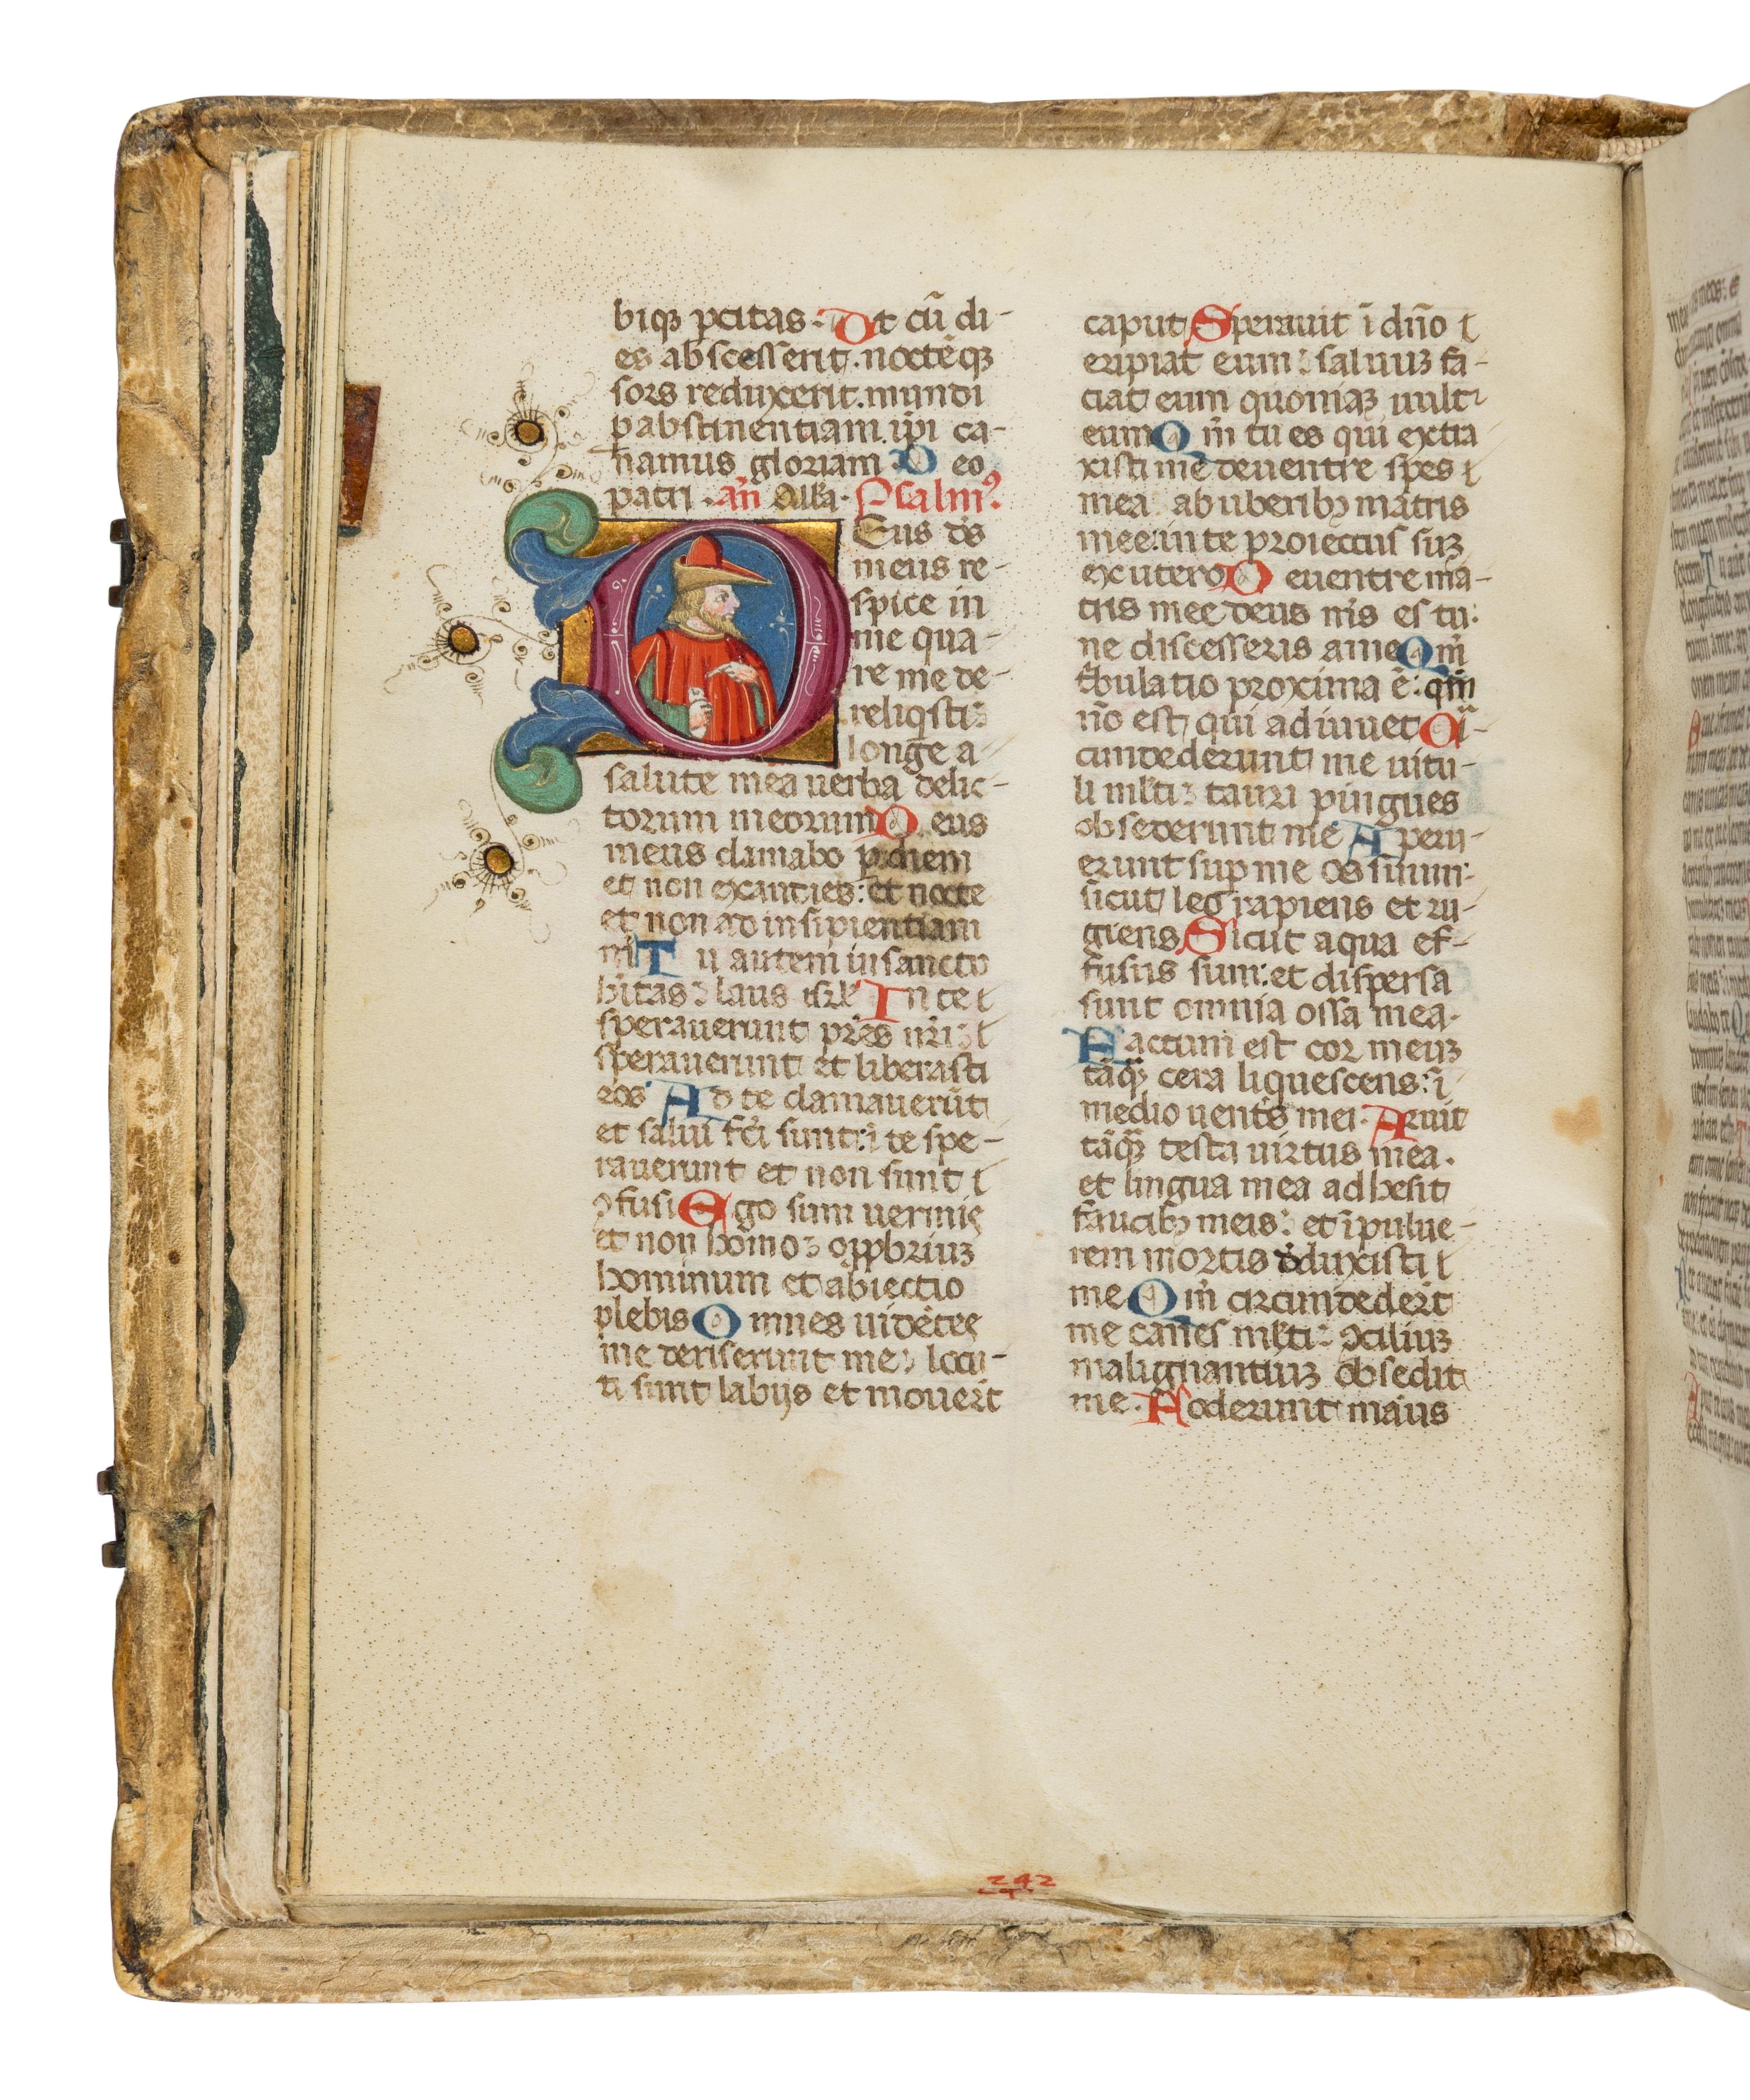 biqꝫ pcitas. Ut cū di-
es abscesserit. noctēqꝫ
sors reduxerit. mundi
p abstinentiam. ip̄i ca-
namus gloriam D eo
patri. an̄ Alla. Psalmꝰ.
Deus ds
meus re-
spice in
me qua-
re me de-
reliqsti:
longe a
salute mea uerba delic-
torum meorum D eus
meus clamabo p diem
et non exaudies: et nocte
et non ad insipientiam
m̄ T u autem in sancto
hitas: laus isrl̄ I n te
sperauerunt prēs nri:
sperauerunt et liberasti
eos A d te clamauerūt
et salui fc̄i sunt: i te spe-
rauerunt et non sunt
ɔfusi E go sum uermis
et non homo: opprbriuꝫ
hominum et abiectio
plebis O mnes uidētes
me deriserunt me: locu-
ti sunt labijs et mouert̄
caput S perauit ī dn̄o
eripiat eum: saluuꝫ fa-
ciat eum quoniaꝫ uult
eum Q m̄ tu es qui extra
xisti me de uentre spes
mea ab uberibꝫ matris
mee: in te proiectus suꝫ
ex utero D e uentre ma-
tris mee deus m̄s es tu:
ne discesseris a me Q m̄
tribulatio proxima ē: qm̄
nō est qui adiuuet Ci-
rcundederunt me uitu-
li mlti: tauri pingues
obsederunt me A peru-
erunt sup me os suum:
sicut leo rapiens et ru-
giens S icut aqua ef-
fusus sum: et dispersa
sunt omnia ossa mea.
F actum est cor meuꝫ
tāqꝫ cera liquescens: ī
medio uentris mei. A ruit
tāqꝫ testa uirtus mea.
et lingua mea adhesit
faucibꝫ meis: et ī pulue-
rem mortis deduxisti
me Q m̄ circundedert̄
me canes mlti: ɔciliuꝫ
malignantiuꝫ obsedit
me. F oderunt manus
242